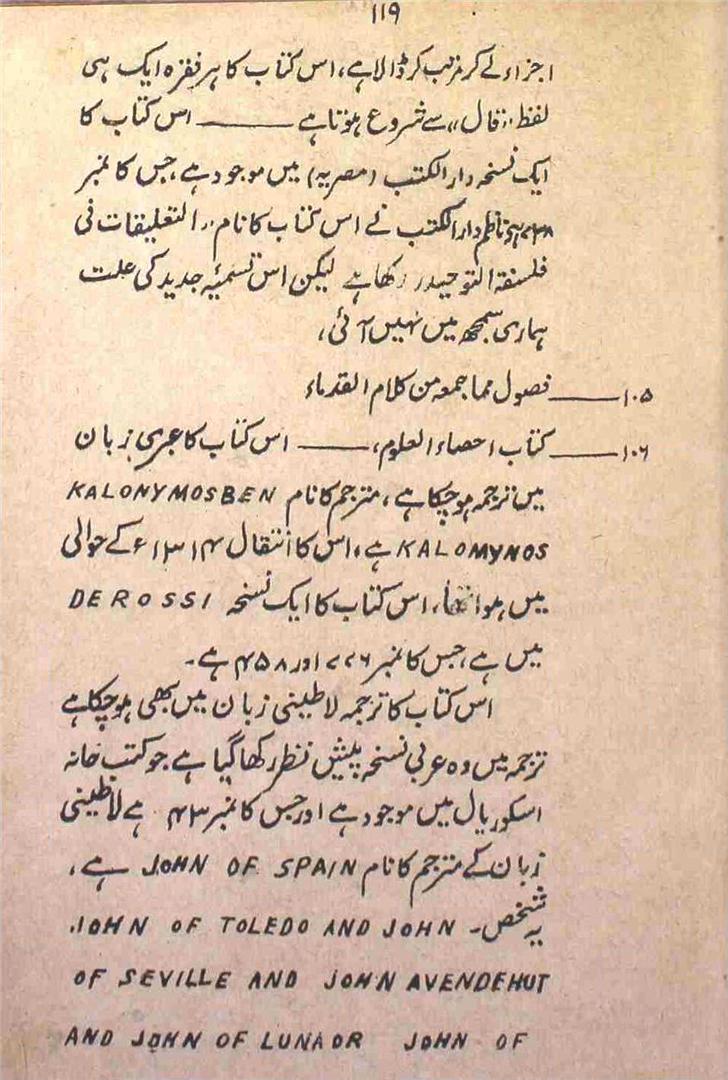 ۱۱۹
اجزاء لے کر مرتب کر ڈالا ہے، اس کتاب کا ہر فقرہ ایک ہی
لفظ "قال" سے شروع ہوتا ہے ـــــــ اس کتاب کا
ایک نسخہ دار الکتب (مصریہ) میں موجود ہے، جس کا نمبر
ناظم دار الکتب نے اس کتاب کا نام "التعلیقات فی
فلسفۃ التوحید" رکھا ہے لیکن اس تسمیۂ جدید کی علت
ہماری سمجھ میں نہیں آئی،
۱۰۵ ـــــــ فصول مما جمعہ من کلام القدماء
۱۰۶ ـــــــ کتاب احصاء العلوم، ـــــــ اس کتاب کا عبری زبان
میں ترجمہ ہو چکا ہے، مترجم کا نام KALONYMOSBEN
KALOMYNOS ہے، اس کا انتقال ۱۳۱۴ء کے حوالی
میں ہوا تھا، اس کتاب کا ایک نسخہ DE ROSSI
میں ہے، جس کا نمبر ۷۷۶ اور ۴۵۸ ہے۔
اس کتاب کا ترجمہ لاطینی زبان میں بھی ہو چکا ہے
ترجمہ میں وہ عربی نسخہ پیش نظر رکھا گیا ہے جو کتب خانہ
اسکوریال میں موجود ہے اور جس کا نمبر ۴۳ ہے لاطینی
زبان کے مترجم کا نام JOHN OF SPAIN ہے،
یہ شخص۔ JOHN OF TOLEDO AND JOHN
OF SEVILLE AND JOHN AVENDEHUT
AND JOHN OF LUNA OR JOHN OF